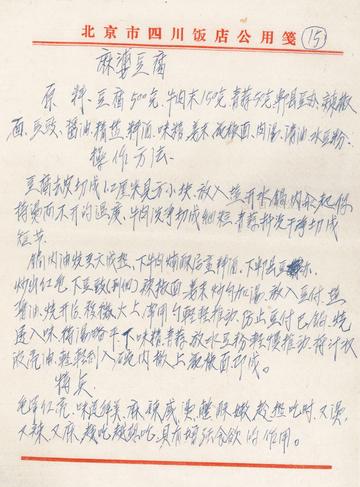 北京市四川饭店公用笺
(15)
麻婆豆腐
原料、豆腐500克、牛肉末150克青蒜5克郫县豆瓣、辣椒
面、豆豉、酱油、精盐、料酒、味精、姜末、花椒面、肉汤、清油水豆粉、
操作方法、
豆腐去皮切成1.2厘米见方小块、放入热开水锅内
保持烫而不开的温度、牛肉洗净切成细粒、青蒜择洗干净切成
短节、
锅内油烧至六成热、下牛肉煵酥后烹料酒、下郫县豆瓣
炒出红色下豆豉、辣椒面姜末炒匀加汤、放入豆付、盐
酱油、烧开后移微火上、常用勺轻轻推动、防止豆付巴锅、烧
进入味稍汤略干、下味精、青蒜放水豆粉轻慢推动、待汁收
浓亮油、轻轻倒入碗内撒上花椒面即成。
特点、
色泽红亮、味道鲜美、麻辣咸烫、酥嫩、趁热吃时、又烫、
又辣、又麻、越吃越热吃、具有增强食欲的作用。